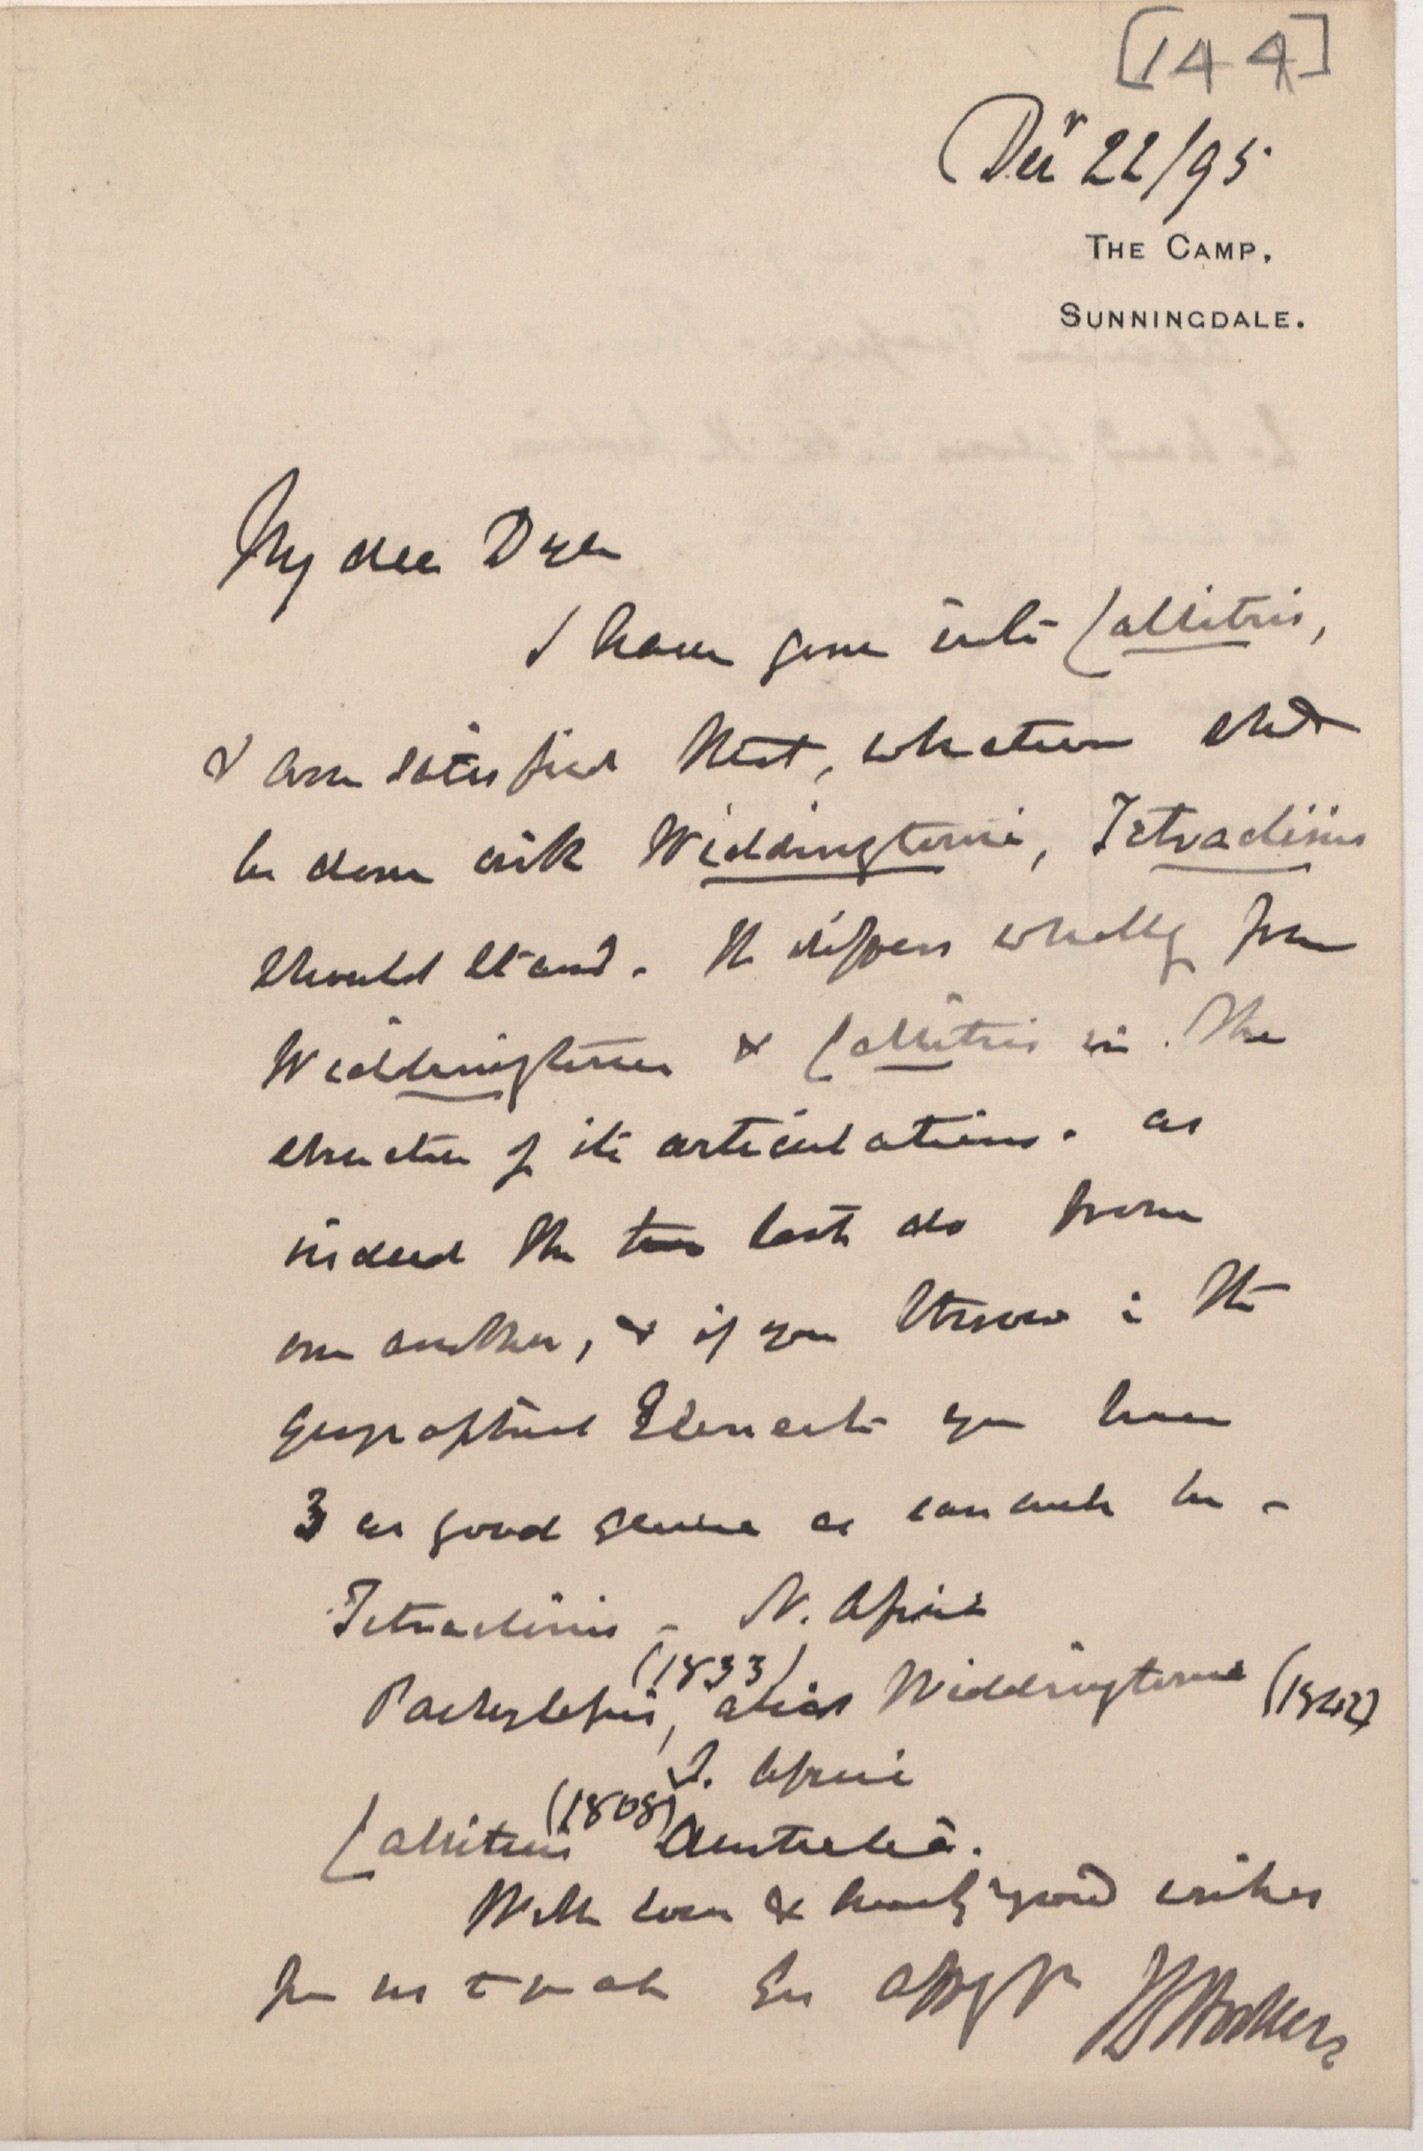 [144]
Decr 22/95
THE CAMP,
SUNNINGDALE.
My dear Dyer
I have gone into Callitris,
& am satisfied that, whatever shd
be done with Widdringtonia, Tetraclinis
should stand. It differs wholly from
Widdringtonia & Callitris in the
structure of its articulations. as
indeed the two last do from
one another, & if you throw in the
geographical Element you have
3 as good genera as can well be -
Tetraclinis - N. Africa
Pachylepis (1833), alias Widdringtonia (1842)
S. Africa
Callitris (1808) Australia.
With love & hearty good wishes
from us to you all Ever affy Yr JDHooker